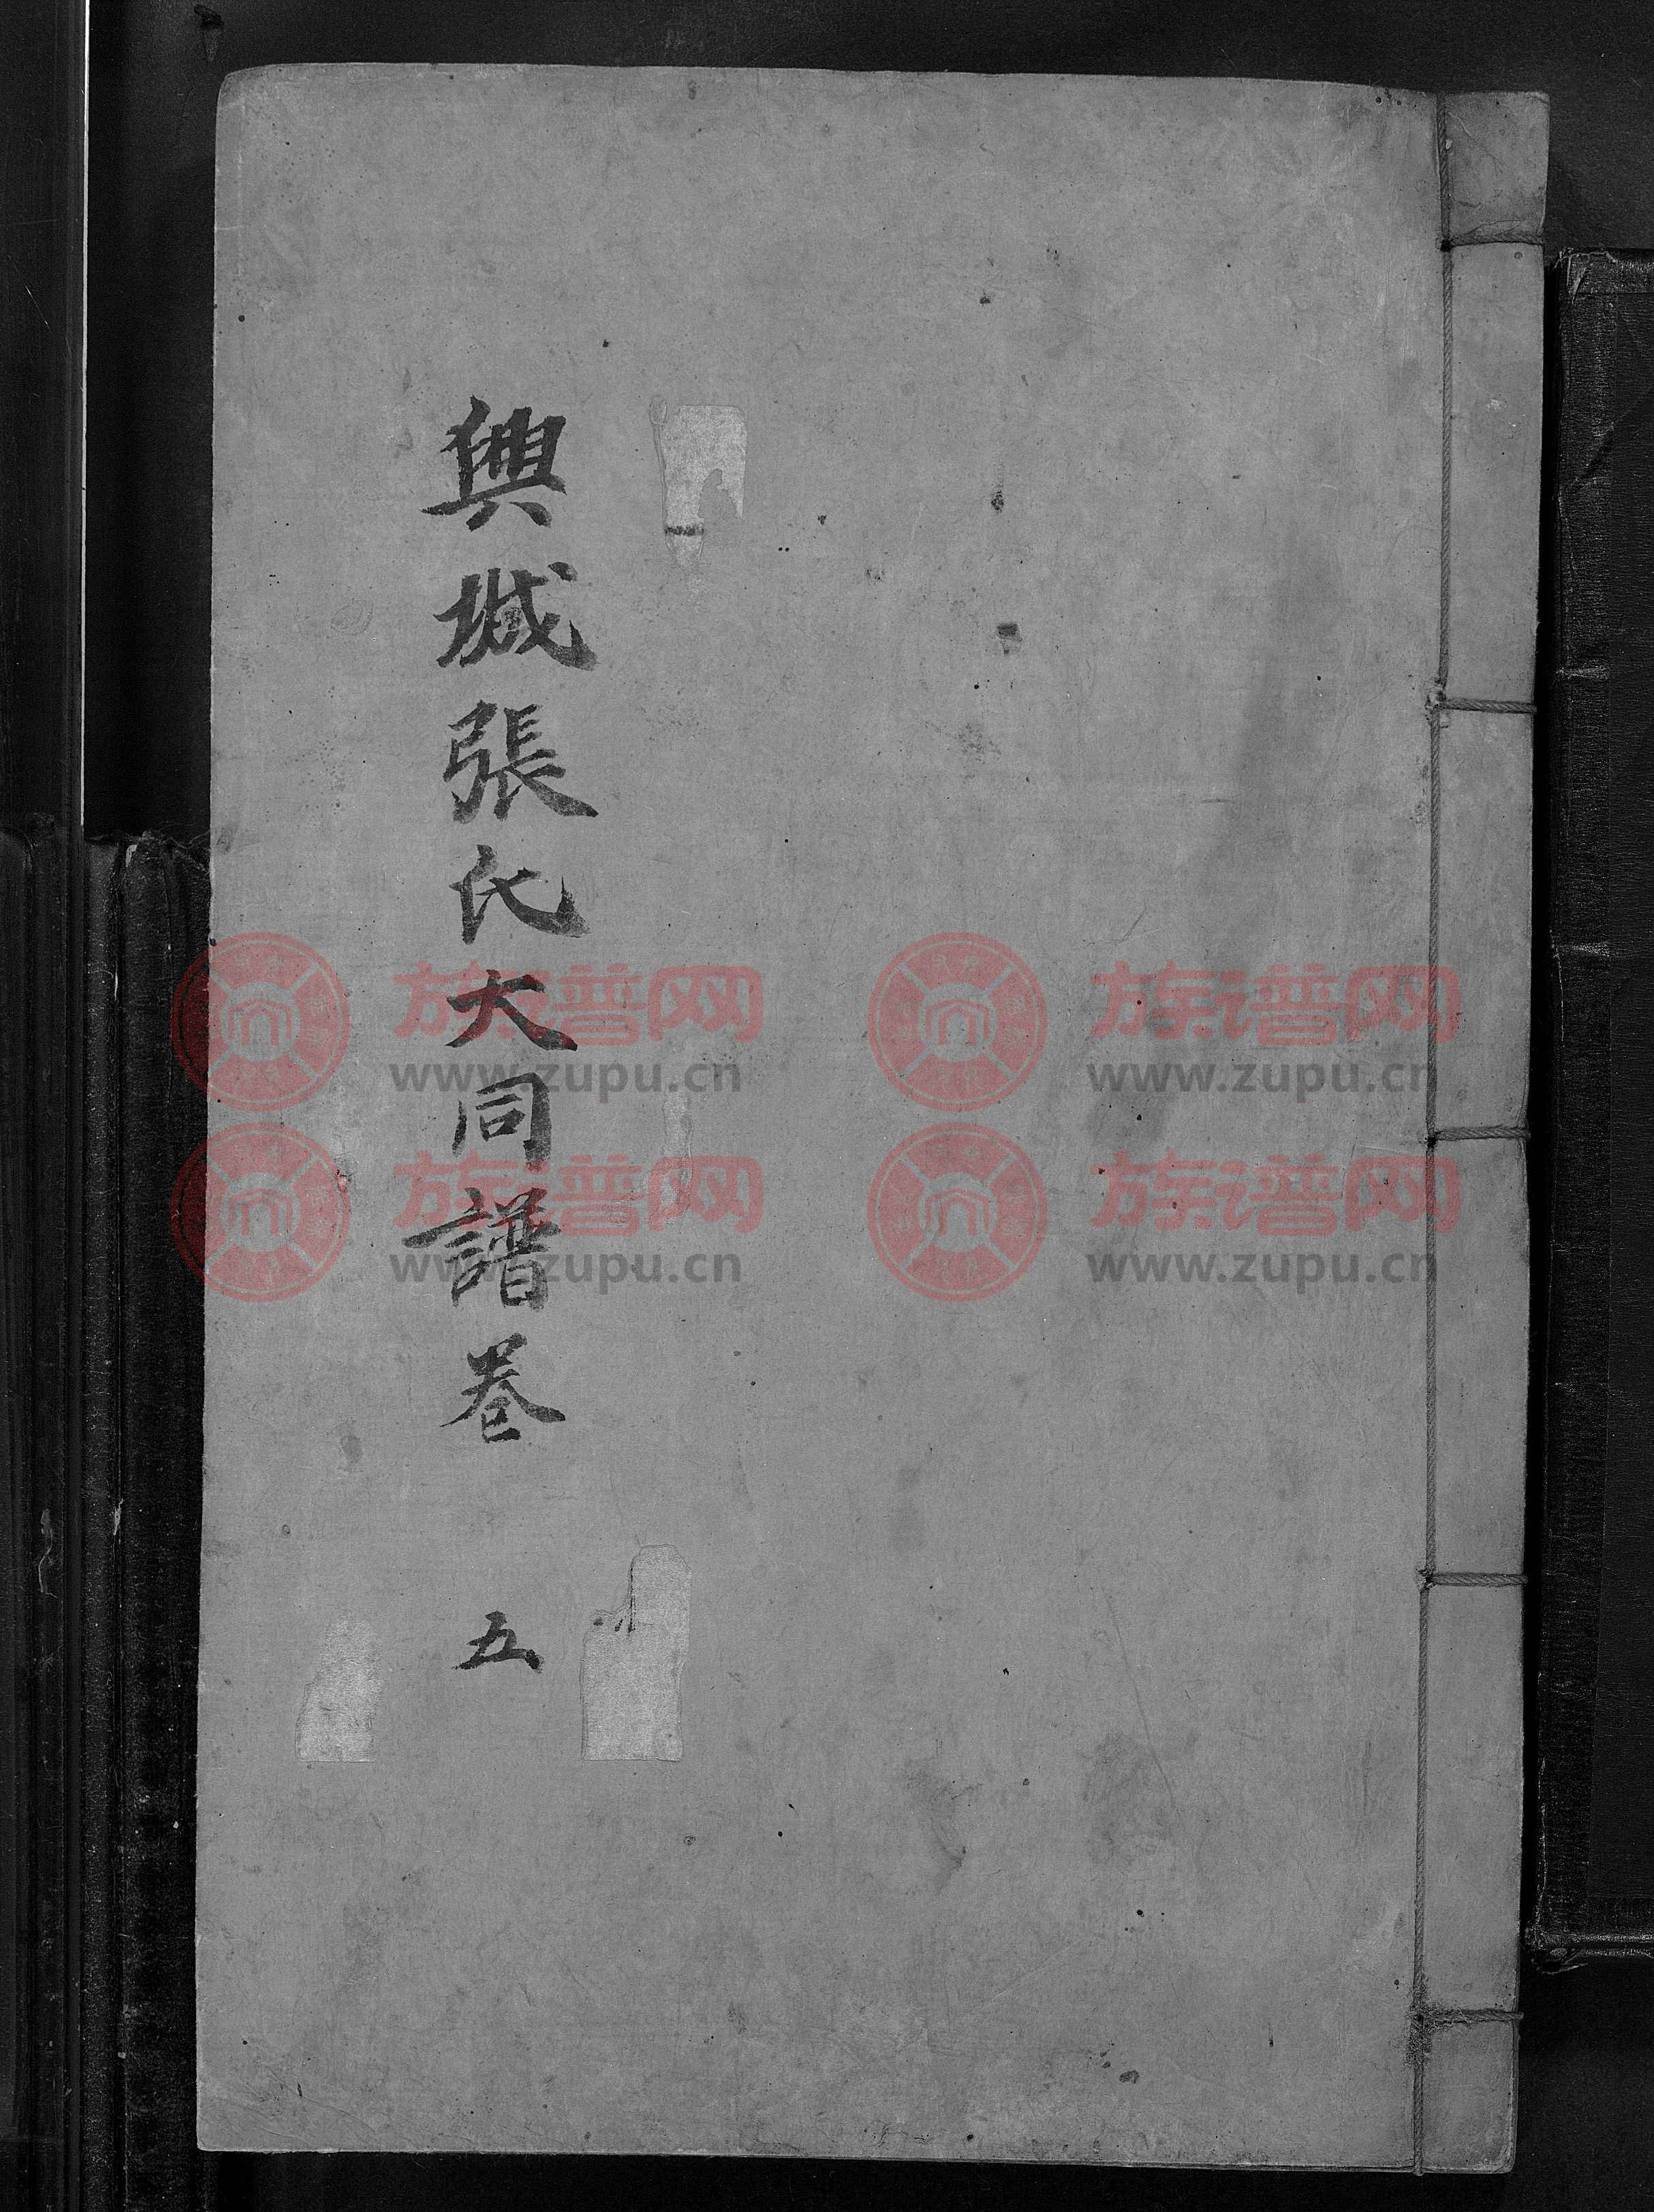 興城張氏大同譜卷 五
族谱网
www.zupu.cn
族谱网
www.zupu.cn
族谱网
www.zupu.cn
族谱网
www.zupu.cn